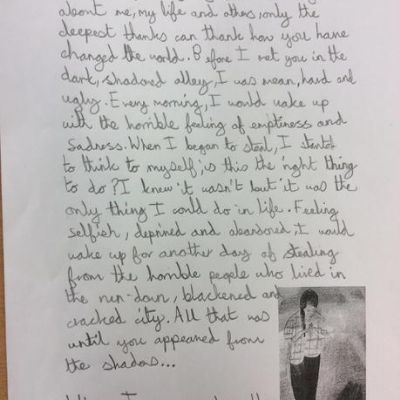 about me, my life and others, only the
deepest thanks can thank how you have
changed the world. Before I met you in the
dark, shadowed alley, I was mean, hard and
ugly. Every morning, I would wake up
with the horrible feeling of emptiness and
sadness. When I began to steal, I started
to think to myself, is this the right thing
to do? I knew it wasn't but it was the
only thing I could do in life. Feeling
selfish, deprived and abandoned, I would
wake up for another day of stealing
from the horrible people who lived in
the run-down, blackened and
cracked city. All that was
until you appeared from
the shadows...